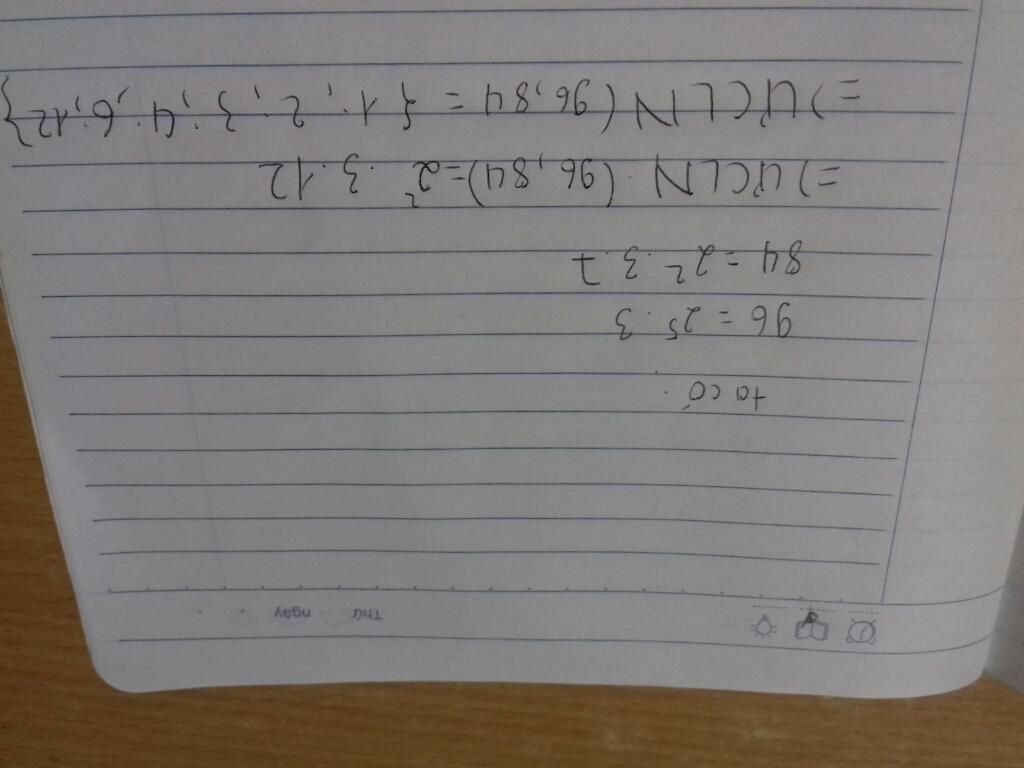 Thứ ngày
ta có
96 = 2⁵ . 3
84 = 2² . 3 . 7
=) ƯCLN (96, 84) = 2² . 3 . 12
=) ƯCLN (96, 84 = { 1 ; 2 ; 3 ; 4 ; 6 ; 12 }